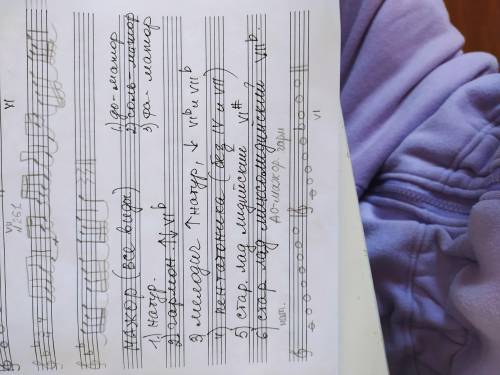 VII VI
N262
мажор (все виды)
1) до-мажор
2) соль-мажор
3) фа-мажор
1. натур.
2) гармон. ↑↓ VI♭
3 мелодич ↑ натур, ↓ VI♭ и VII♭
4) пентатоника (без IV и VII)
5) стар. лад лидийский VI#
6) стар лад миксолидийский VII♭
нат. до-мажор гарм
VI